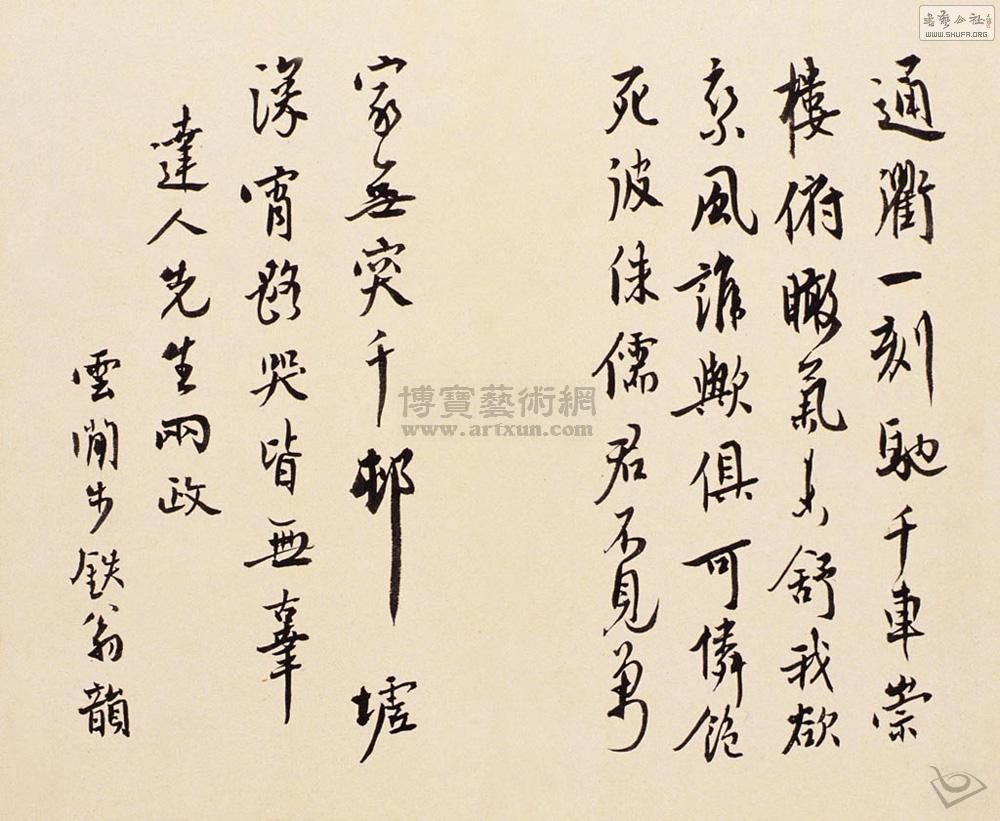 通衢一刻馳千車崇
樓俯瞰氣少舒我欲
禦風誰歟俱可憐飽
死彼侏儒君不見萬
家無突千邨墟
深宵路哭皆無辜
達人先生兩政
雲間步鉄翁韻
書藝公社
WWW.SHUFA.ORG
博寶藝術網
www.artxun.com